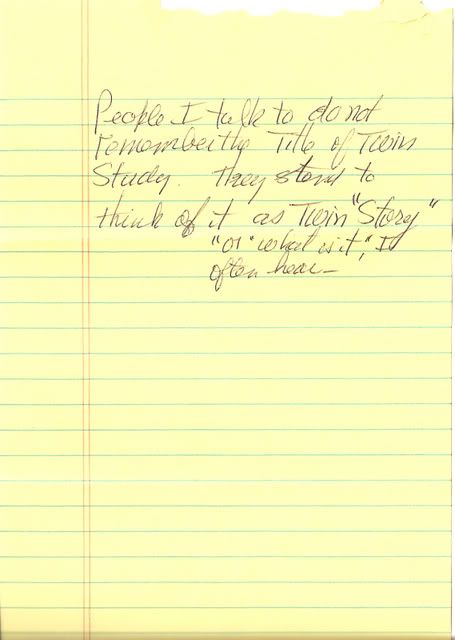 People I talk to do not
remember the Title of Twin
Study. They stend to
think of it as Twin "Story"
"or "what is it", I
often hear—